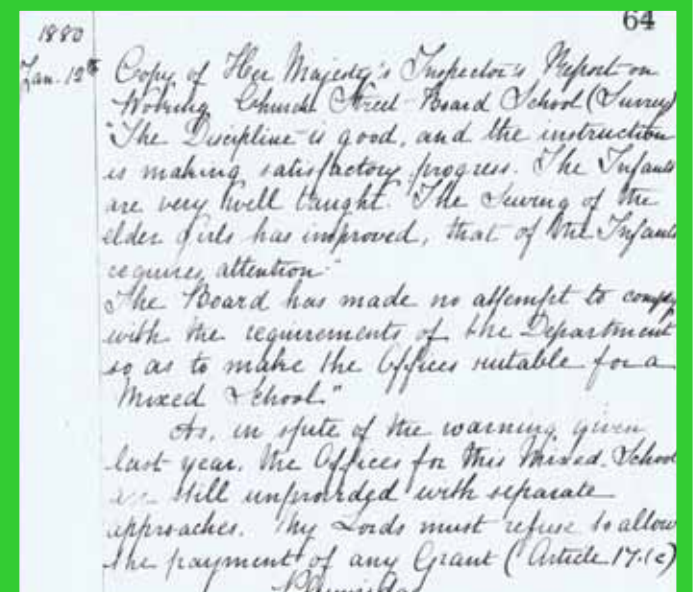 64
1880
Jan. 12th
Copy of Her Majesty's Inspector's Report on
Woking Church Street Board School (Surrey)
"The Discipline is good, and the instruction
is making satisfactory progress. The Infants
are very well taught. The Sewing of the
elder girls has improved, that of the Infants
requires attention."
The Board has made no attempt to comply
with the requirements of the Department
so as to make the Offices suitable for a
Mixed School."
As, in spite of the warning given
last year, the Offices for this Mixed School
are still unprovided with separate
approaches. My Lords must refuse to allow
the payment of any Grant (Article 17.(c)